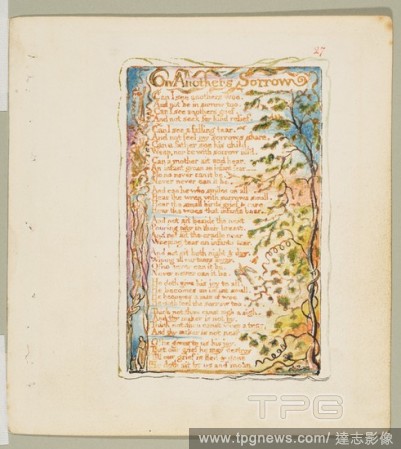 27
On Anothers Sorrow
Can I see anothers woe,
And not be in sorrow too.
Can I see anothers grief,
And not seek for kind relief.
Can I see a falling tear,
And not feel my sorrows share,
Can a father see his child,
Weep, nor be with sorrow fill'd.
Can a mother sit and hear,
An infant groan an infant fear
No no never can it be.
Never never can it be.
And can he who smiles on all
Hear the wren with sorrows small,
Hear the small birds grief & care
Hear the woes that infants bear
And not sit beside the nest
Pouring pity in their breast,
And not sit the cradle near
Weeping tear on infants tear.
And not sit both night & day,
Wiping all our tears away.
O! no never can it be.
Never never can it be.
He doth give his joy to all.
He becomes an infant small.
He becomes a man of woe
He doth feel the sorrow too.
Think not, thou canst sigh a sigh,
And thy maker is not by.
Think not, thou canst weep a tear,
And thy maker is not near.
O! he gives to us his joy,
That our grief he may destroy
Till our grief is fled & gone
He doth sit by us and moan
TPG
www.tpgnews.com/達志影像